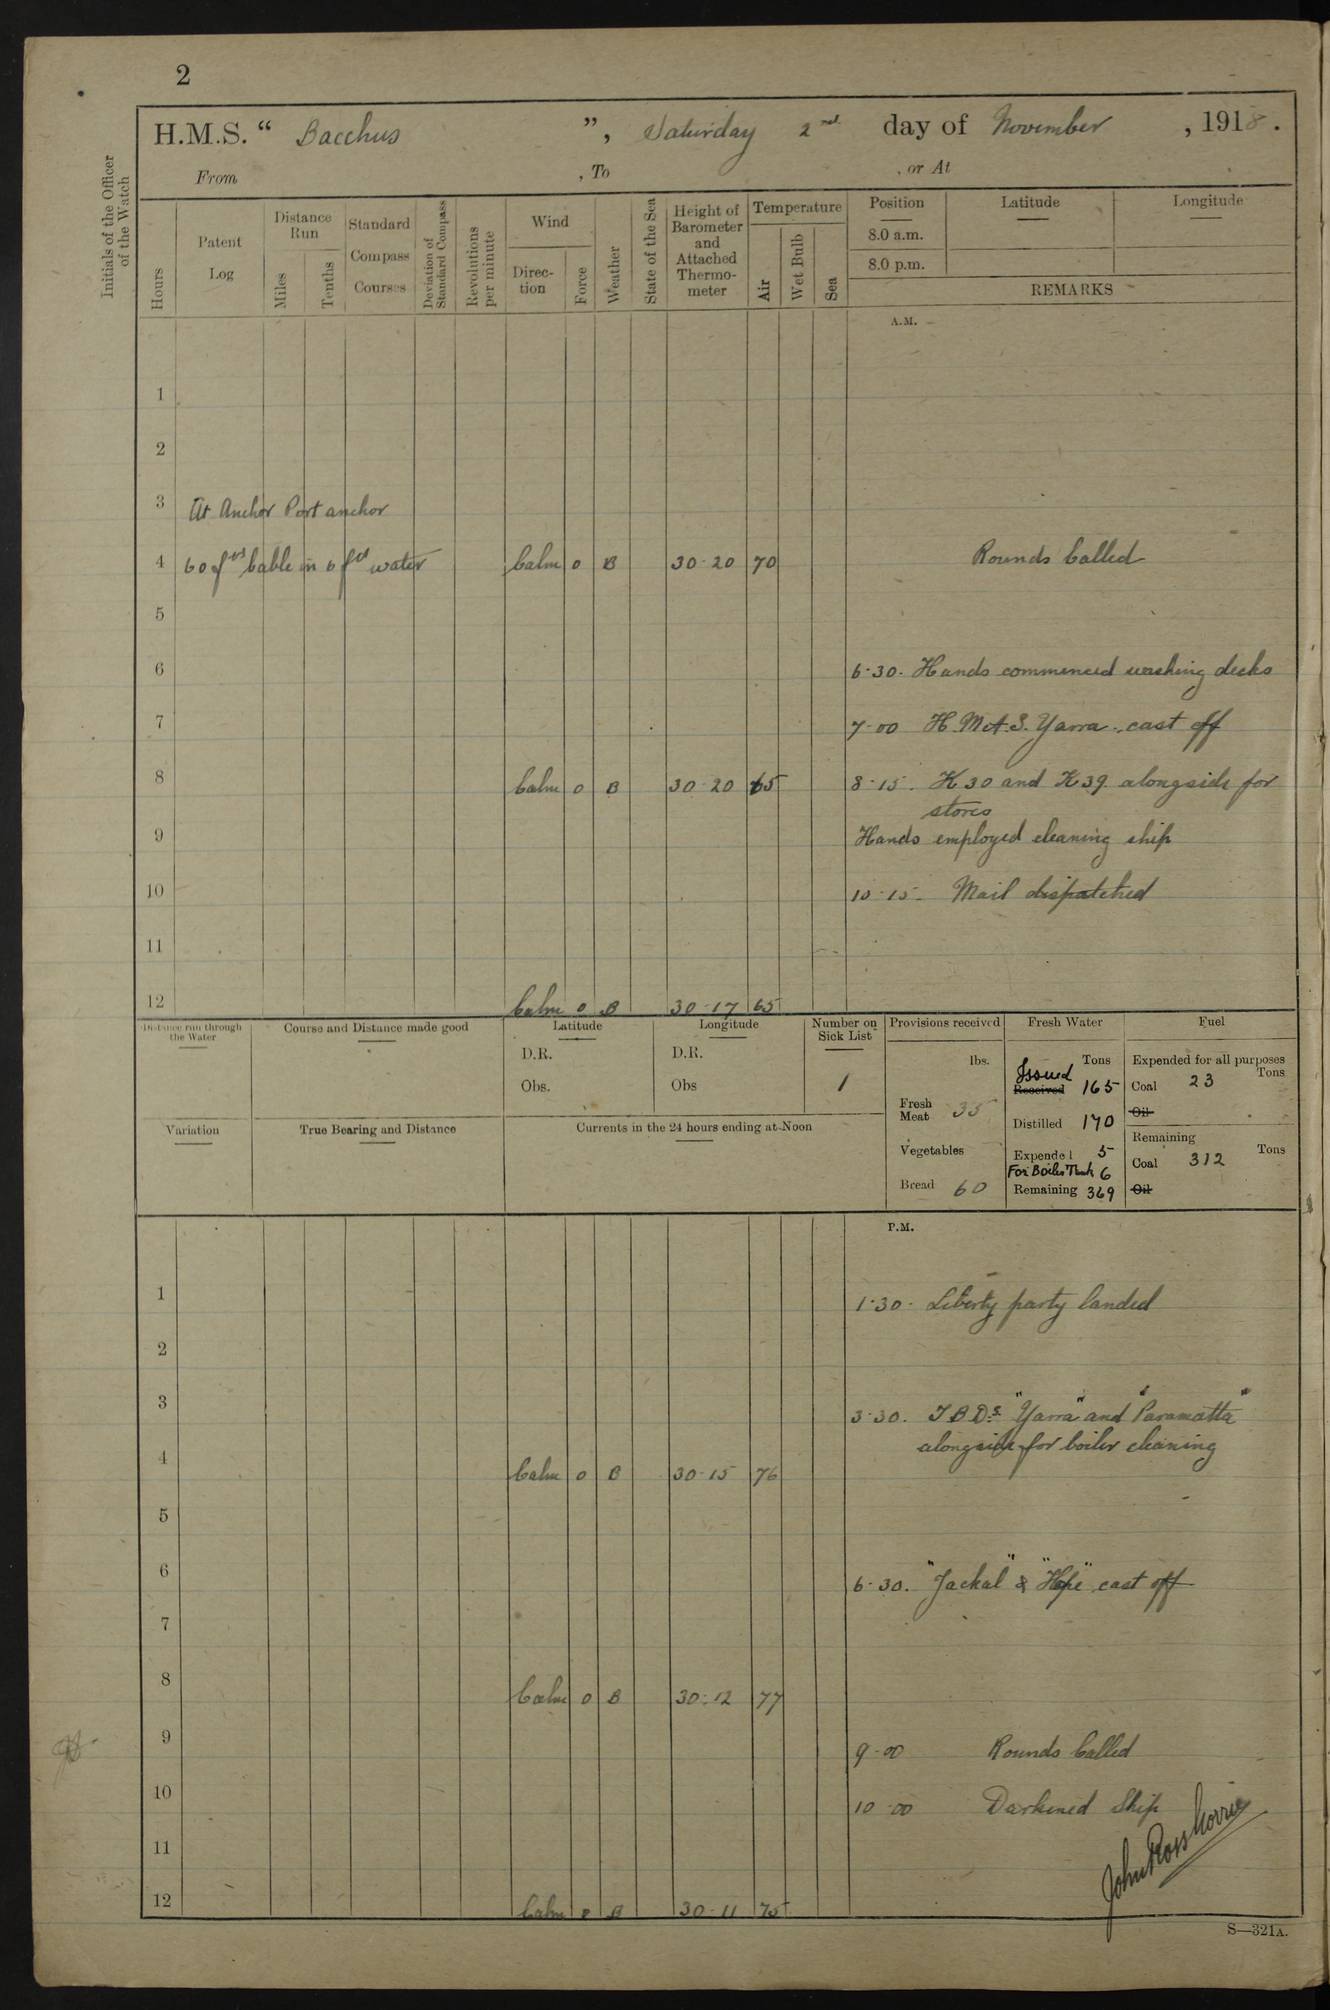 2
H.M.S. “ Bacchus ”, Saturday 2nd day of November, 1918.
From , To , or At
Initials of the Officer of the Watch
Hours
Patent Log
Distance Run
Miles
Tenths
Standard Compass Courses
Deviation of Standard Compass
Revolutions per minute
Wind
Direc-tion
Force
Weather
State of the Sea
Height of Barometer and Attached Thermo-meter
Temperature
Air
Wet Bulb
Sea
Position Latitude Longitude
8.0 a.m.
8.0 p.m.
REMARKS
A.M.
1
2
3 At Anchor Port anchor
4 60 fms Cable in 6 fms water Calm 0 B 30·20 70 Rounds Called
5
6 6·30. Hands commenced washing decks
7 7·00 H.M.A.S. Yarra cast off
8 Calm 0 B 30·20 65 8·15. K30 and K39 alongside for
stores
9 Hands employed cleaning ship
10 10·15. Mail dispatched
11
12 Calm 0 B 30·17 65
Distance run through the Water
Course and Distance made good
Latitude
D.R.
Obs.
Longitude
D.R.
Obs
Number on Sick List
1
Provisions received
lbs.
Fresh Meat 35
Vegetables
Bread 60
Fresh Water
Tons
Issued
Received 165
Distilled 170
Expended 5
For Boiler Tank 6
Remaining 369
Fuel
Expended for all purposes
Tons
Coal 23
Oil
Remaining
Tons
Coal 312
Oil
Variation
True Bearing and Distance
Currents in the 24 hours ending at Noon
P.M.
1 1·30. Liberty party landed
2
3 3·30. T.B.D.s "Yarra" and "Paramatta"
alongside for boiler cleaning
4 Calm 0 B 30·15 76
5
6 6·30. "Jackal" & "Hope" cast off
7
8 Calm 0 B 30·12 77
9 9·00 Rounds Called
10 10·00 Darkened Ship
11
12 Calm 0 B 30·11 75
S—321A.